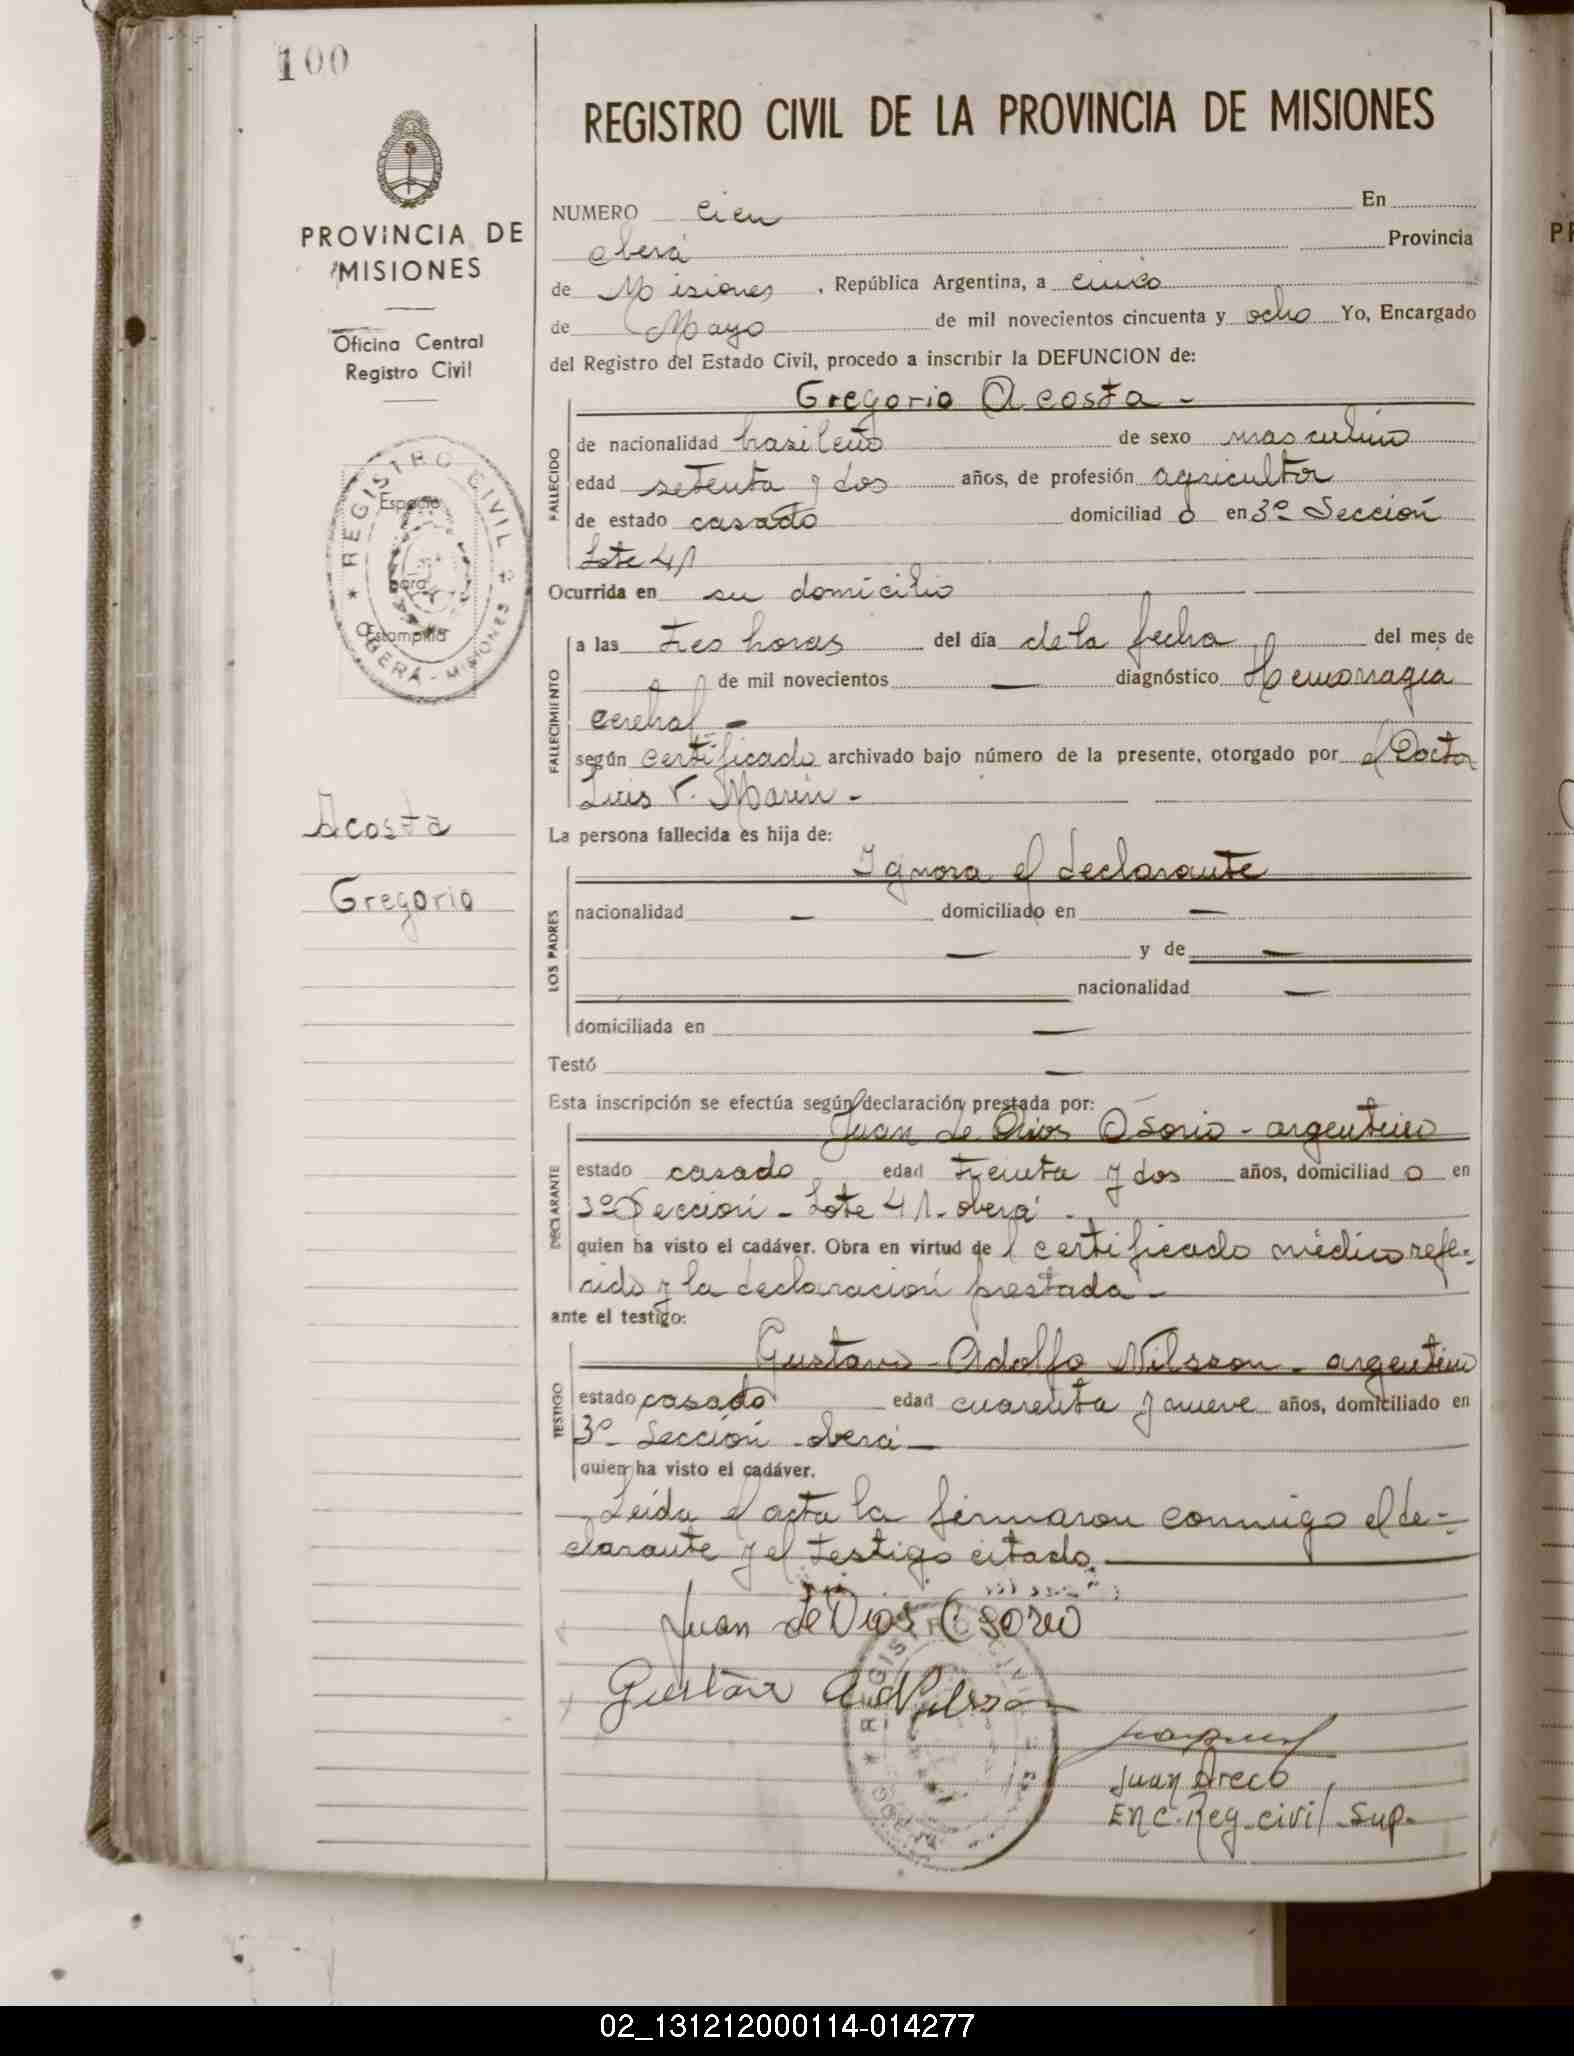 100
REGISTRO CIVIL DE LA PROVINCIA DE MISIONES
PROVINCIA DE
MISIONES
Oficina Central
Registro Civil
REGISTRO CIVIL
Espacio
para
Estampilla
OBERÁ - MISIONES
Acosta
Gregorio
NUMERO cien En
oberá Provincia
de Misiones, República Argentina, a cinco
de Mayo de mil novecientos cincuenta y ocho Yo, Encargado
del Registro del Estado Civil, procedo a inscribir la DEFUNCION de:
Gregorio Acosta -
FALLECIDO
de nacionalidad brasileño de sexo masculino
edad setenta y dos años, de profesión agricultor
de estado casado domiciliad o en 3º Sección
Lote 41
Ocurrida en su domicilio
FALLECIMIENTO
a las tres horas del día de la fecha del mes de
de mil novecientos — diagnóstico Hemorragia
cerebral -
según certificado archivado bajo número de la presente, otorgado por el Doctor
Luis V. Marin -
La persona fallecida es hija de:
LOS PADRES
Ignora el declarante
nacionalidad — domiciliado en —
— y de —
nacionalidad —
domiciliada en —
Testó —
Esta inscripción se efectúa según declaración prestada por:
DECLARANTE
Juan de Dios Osorio - argentino
estado casado edad treinta y dos años, domiciliad o en
3º Sección - Lote 41 - oberá -
quien ha visto el cadáver. Obra en virtud de l certificado médico refe-
rido y la declaración prestada -
ante el testigo:
TESTIGO
Gustavo - Adolfo Nilsson - argentino
estado casado edad cuarenta y nueve años, domiciliado en
3º Sección - oberá —
quien ha visto el cadáver.
Leída el acta la firmaron conmigo el de-
clarante y el testigo citado.
Juan de Dios Osorio
Gustav A Nilsson
Juan Areco
Enc. Reg. civil Sup.
02_131212000114-014277